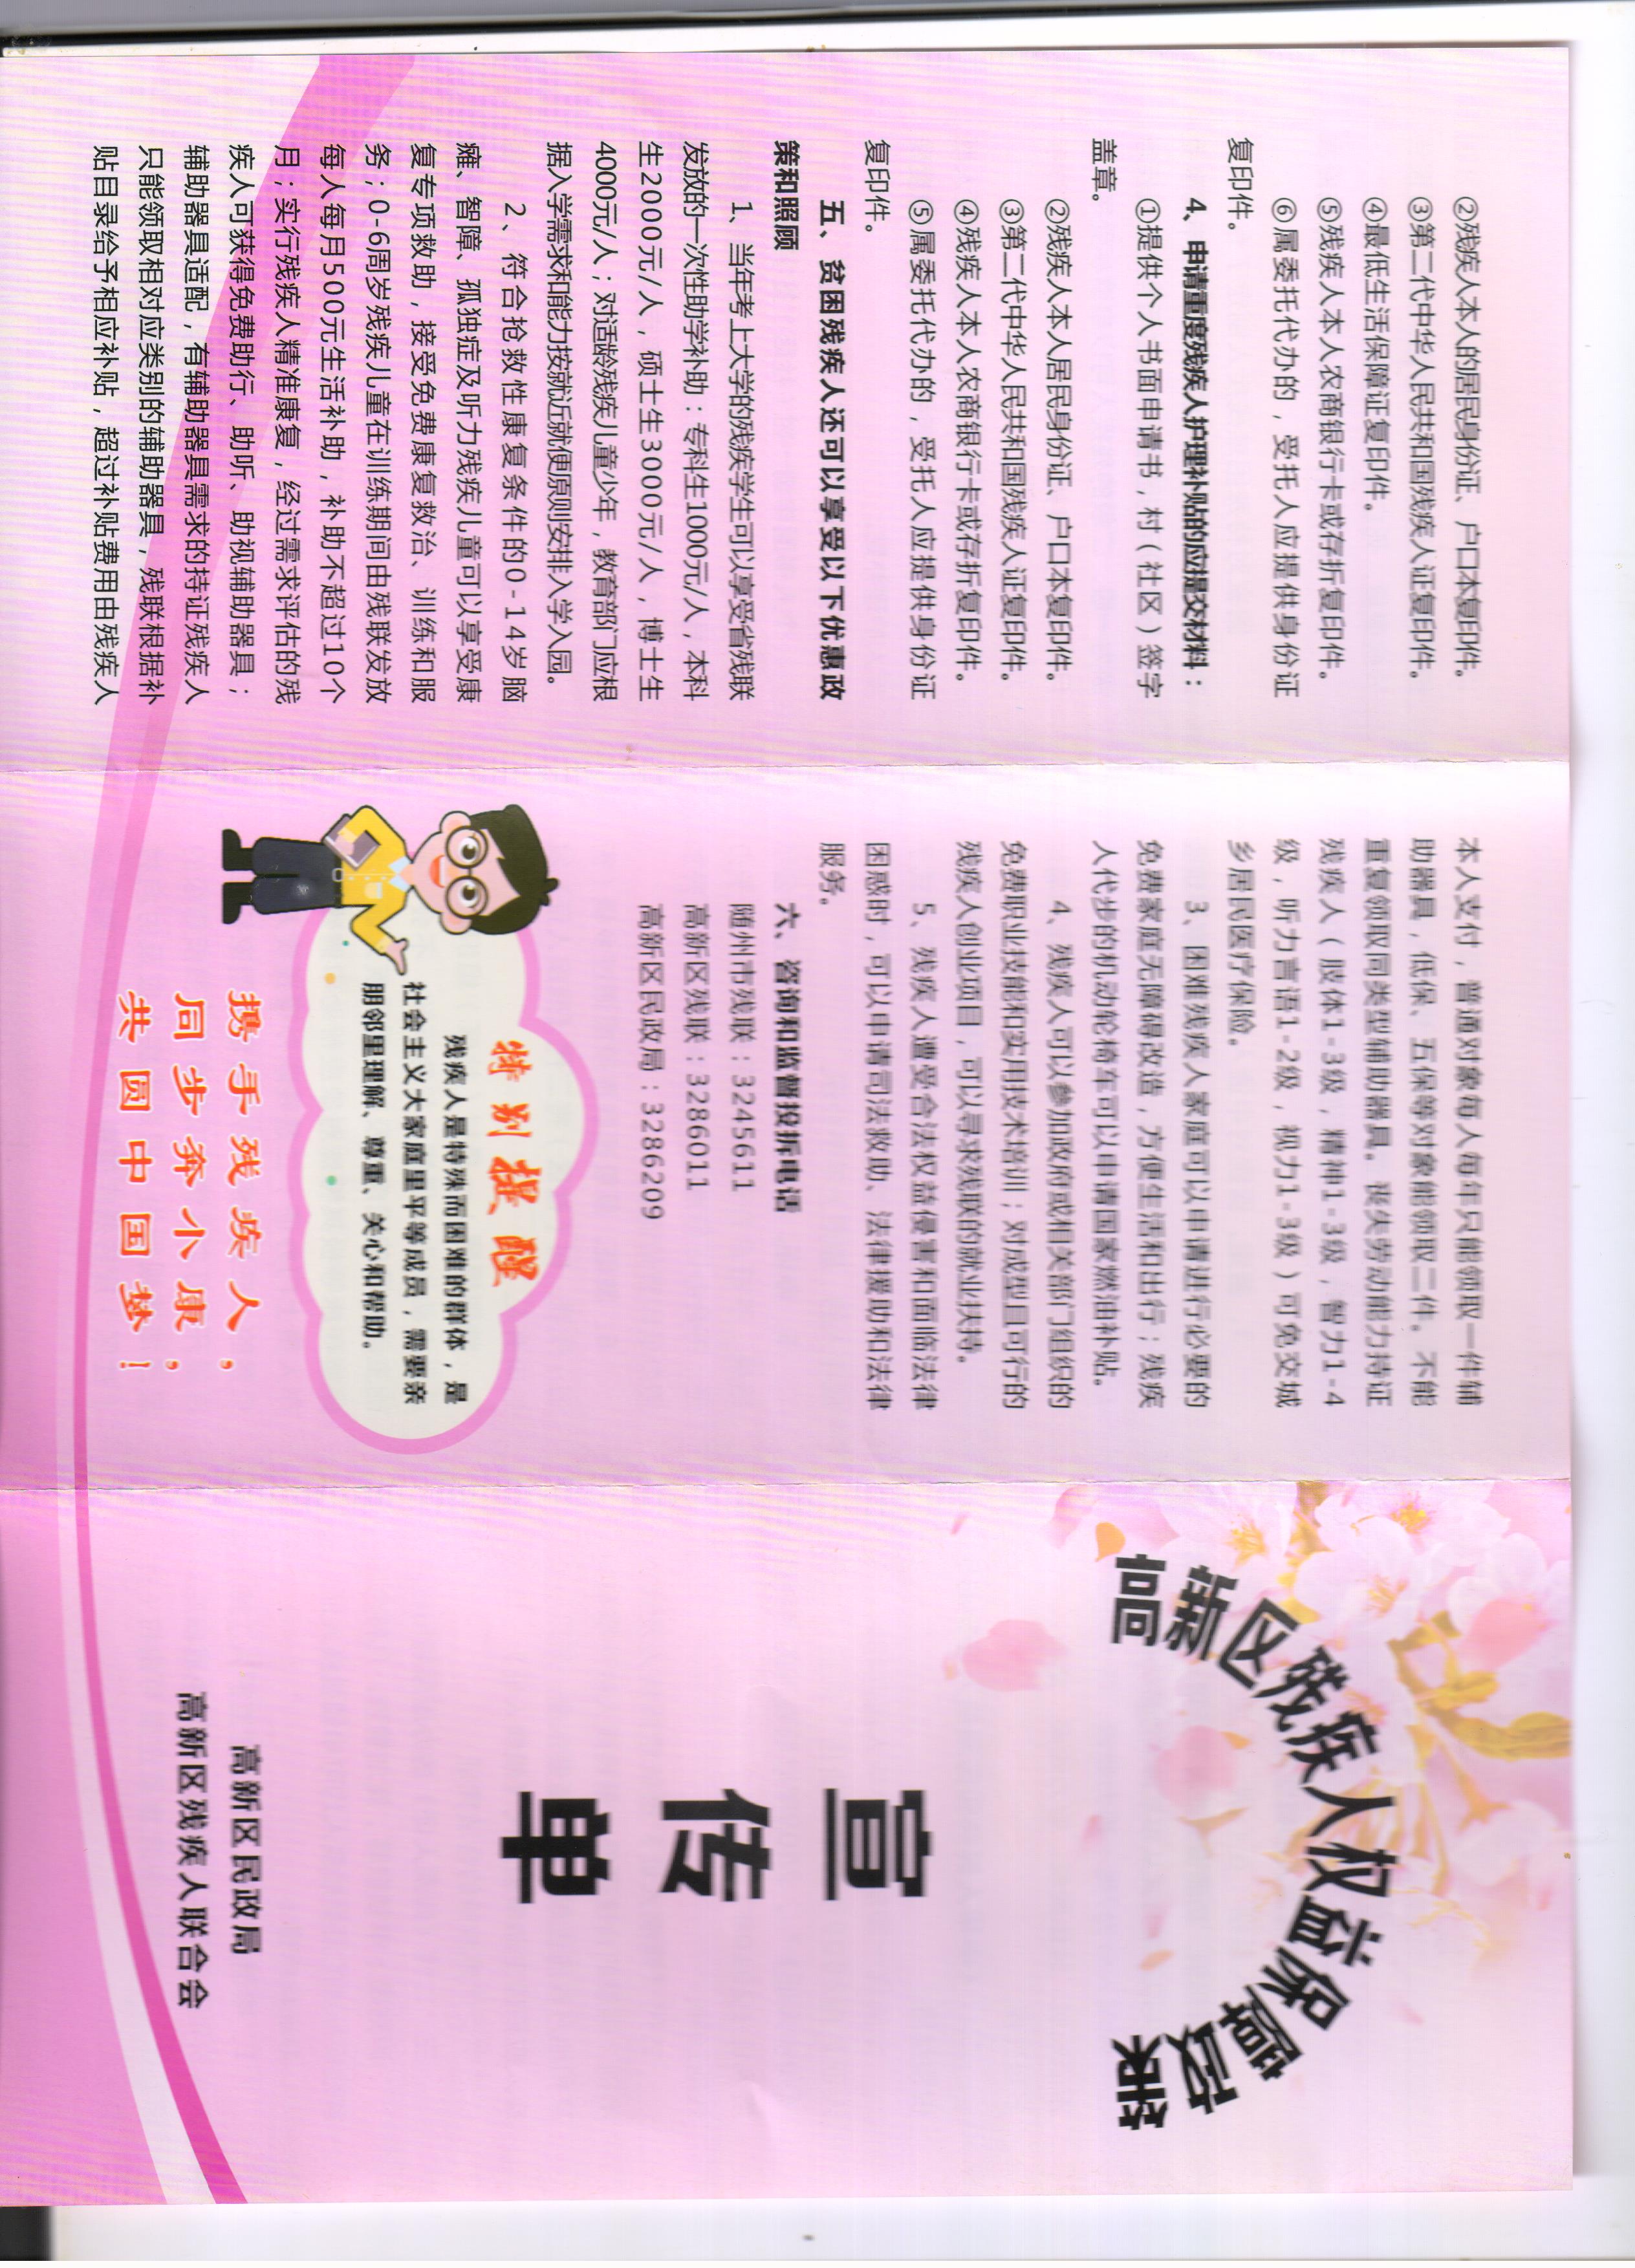 ②残疾人本人的居民身份证、户口本复印件。
③第二代中华人民共和国残疾人证复印件。
④最低生活保障证复印件。
⑤残疾人本人农商银行卡或存折复印件。
⑥属委托代办的，受托人应提供身份证
复印件。
4、申请重度残疾人护理补贴的应提交材料：
①提供个人书面申请书，村（社区）签字
盖章。
②残疾人本人居民身份证、户口本复印件。
③第二代中华人民共和国残疾人证复印件。
④残疾人本人农商银行卡或存折复印件。
⑤属委托代办的，受托人应提供身份证
复印件。
五、贫困残疾人还可以享受以下优惠政
策和照顾
1、当年考上大学的残疾学生可以享受省残联
发放的一次性助学补助：专科生1000元/人，本科
生2000元/人，硕士生3000元/人，博士生
4000元/人；对适龄残疾儿童少年，教育部门应根
据入学需求和能力按就近就便原则安排入学入园。
2、符合抢救性康复条件的0-14岁脑
瘫、智障、孤独症及听力残疾儿童可以享受康
复专项救助，接受免费康复救治、训练和服
务；0-6周岁残疾儿童在训练期间由残联发放
每人每月500元生活补助，补助不超过10个
月；实行残疾人精准康复，经过需求评估的残
疾人可获得免费助行、助听、助视辅助器具；
辅助器具适配，有辅助器具需求的持证残疾人
只能领取相对应类别的辅助器具，残联根据补
贴目录给予相应补贴，超过补贴费用由残疾人
本人支付，普通对象每人每年只能领取一件辅
助器具，低保、五保等对象能领取二件。不能
重复领取同类型辅助器具。丧失劳动能力持证
残疾人（肢体1-3级，精神1-3级，智力1-4
级，听力言语1-2级，视力1-3级）可免交城
乡居民医疗保险。
3、困难残疾人家庭可以申请进行必要的
免费家庭无障碍改造，方便生活和出行；残疾
人代步的机动轮椅车可以申请国家燃油补贴。
4、残疾人可以参加政府或相关部门组织的
免费职业技能和实用技术培训；对成型且可行的
残疾人创业项目，可以寻求残联的就业扶持。
5、残疾人遭受合法权益侵害和面临法律
困惑时，可以申请司法救助、法律援助和法律
服务。
六、咨询和监督投拆电话
随州市残联：3245611
高新区残联：3286011
高新区民政局：3286209
特别提醒
残疾人是特殊而困难的群体，是
社会主义大家庭里平等成员，需要亲
朋邻里理解、尊重、关心和帮助。
携手残疾人，
同步奔小康，
共圆中国梦！
高新区残疾人权益保障政策
宣
传
单
高新区民政局
高新区残疾人联合会